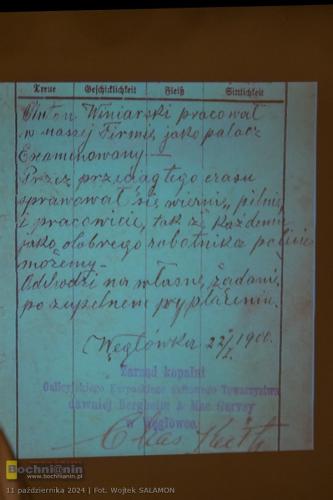 Treue Geschicklichkeit Fleiß Sittlichkeit
Anton Winiarski pracował
w naszej Firmie jako palacz
Examinowany —
Przez przeciąg tego czasu
sprawował się wiernie, pilnie
i pracowicie, tak że każdemu
jako dobrego robotnika polecić
możemy.
Odchodzi na własne żądanie
po zupełnem wypłaceniu.
Węglówka 22/I 1900.
Zarząd kopalni
Galicyjskiego Karpackiego Naftowego Towarzystwa
dawniej Bergheim & Mac Garvey
w Węglówce.
Bochni@nin
www.bochnianin.pl
11 października 2024 | Fot. Wojtek SALAMON